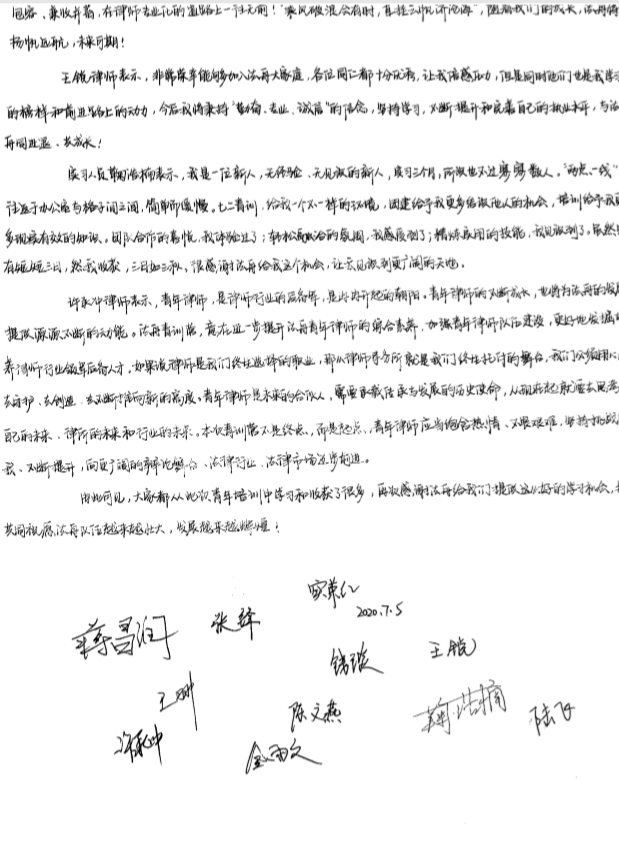 包容、兼收并蓄，在律师专业化的道路上一往无前！“乘风破浪会有时，直挂云帆济沧海”，随着我们的成长，法再将
扬帆远航，未来可期！
王锐律师表示，非常荣幸能够加入法再大家庭，各位同仁都十分优秀，让我倍感压力，但是同时他们也是我学习
的榜样和前进路上的动力，今后我将秉持“勤奋、专业、诚信”的信念，坚持学习，不断提升和完善自己的执业水平，与法
再同进退、共成长！
实习人员鞠浩楠表示，我是一位新人，无经验、无见识的新人，实习三个月，所识也不过寥寥数人。“两点一线”
往返于办公室与格子间之间，简单而缓慢。七二青训，给我一个不一样的环境，团建给予我更多结识他人的机会，培训给予我更
多现成有效的知识。团队合作的喜悦，我体验过了；轻松融洽的氛围，我感受到了；精炼实用的技能，我见识到了。虽然
有短短三日，然我收获，三日如三秋。很感谢法再给我这个机会，让我见识到更广阔的天地。
许承中律师表示，青年律师，是律师行业的后备军，是冉冉升起的朝阳。青年律师的不断成长，也将为法再的发展
提供源源不断的动能。法再青训营，意在进一步提升法再青年律师的综合素养，加强青年律师队伍建设，更好地发掘
养律师行业领军后备人才。如果说律师是我们终生选择的职业，那么律师事务所就是我们终生托付的舞台，我们必须用心
去呵护、去创造、去不断推向新的高度。青年律师是未来的合伙人，需要承载传承与发展的历史使命，从现在起就要去思考
己的未来、律所的未来和行业的未来。本次青训营不是终点，而是起点，青年律师应当饱含热情、不畏艰难，坚持挑战
去、不断提升，向更广阔的辩论舞台、法律行业、法律市场逐步前进。
由此可见，大家都从此次青年培训中学习和收获了很多，再次感谢法再给我们提供这么好的学习机会，
共同祝愿法再队伍越来越壮大，发展越来越辉煌！
2020.7.5
蒋昌润 张绎
王锐
陈文燕 鞠浩楠 陆飞
许承中 金雨文